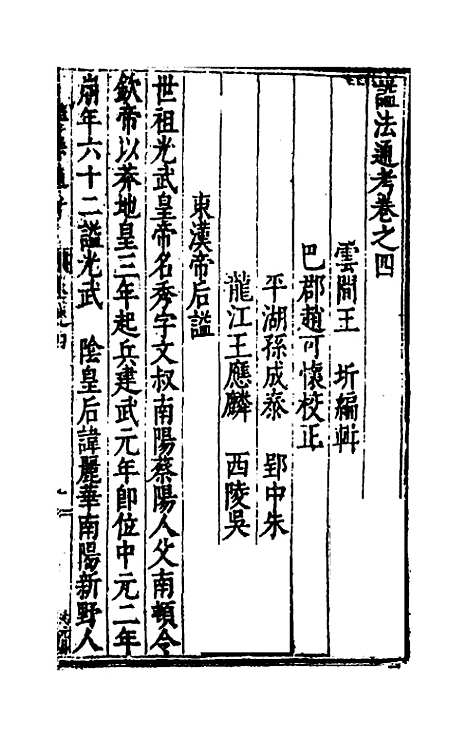 謚法通考卷之四
雲間王 圻編輯
巴郡趙可懷校正
平湖孫成泰 郢中朱
龍江王應麟 西陵吳
東漢帝后謚
世祖光武皇帝名秀字文叔南陽蔡陽人父南頓令
欽帝以莽地皇三年起兵建武元年即位中元二年
崩年六十二謚光武 陰皇后諱麗華南陽新野人